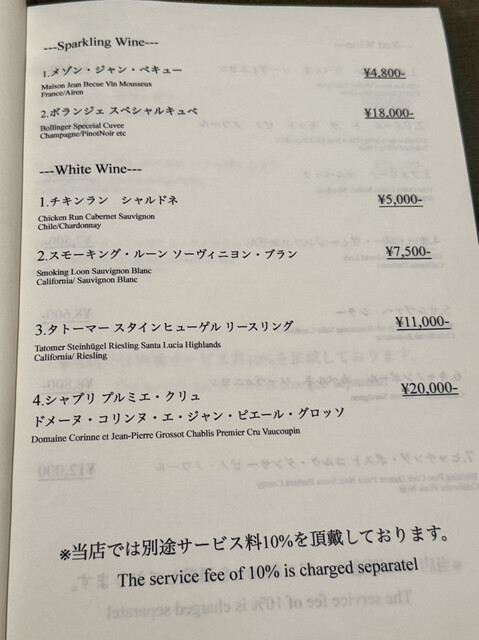 ---Sparkling Wine---
1.メゾン・ジャン・ベキュー ¥4,800-
Maison Jean Becue Vin Mousseux
France/Airen
2.ボランジェ スペシャルキュベ ¥18,000-
Bollinger Speceial Cuvee
Champagne/PinotNoir etc
---White Wine---
1.チキンラン シャルドネ ¥5,000-
Chicken Run Cabernet Sauvignon
Chile/Chardonnay
2.スモーキング・ルーン ソーヴィニヨン・ブラン ¥7,500-
Smoking Loon Sauvignon Blanc
California/ Sauvignon Blanc
3.タトーマー スタインヒューゲル リースリング ¥11,000-
Tatomer Steinhügel Riesling Santa Lucia Highlands
California/ Riesling
4.シャブリ プルミエ・クリュ ¥20,000-
ドメーヌ・コリンヌ・エ・ジャン・ピエール・グロッソ
Domaine Corinne et Jean-Pierre Grossot Chablis Premier Cru Vaucoupin
※当店では別途サービス料10%を頂戴しております。
The service fee of 10% is charged separatel